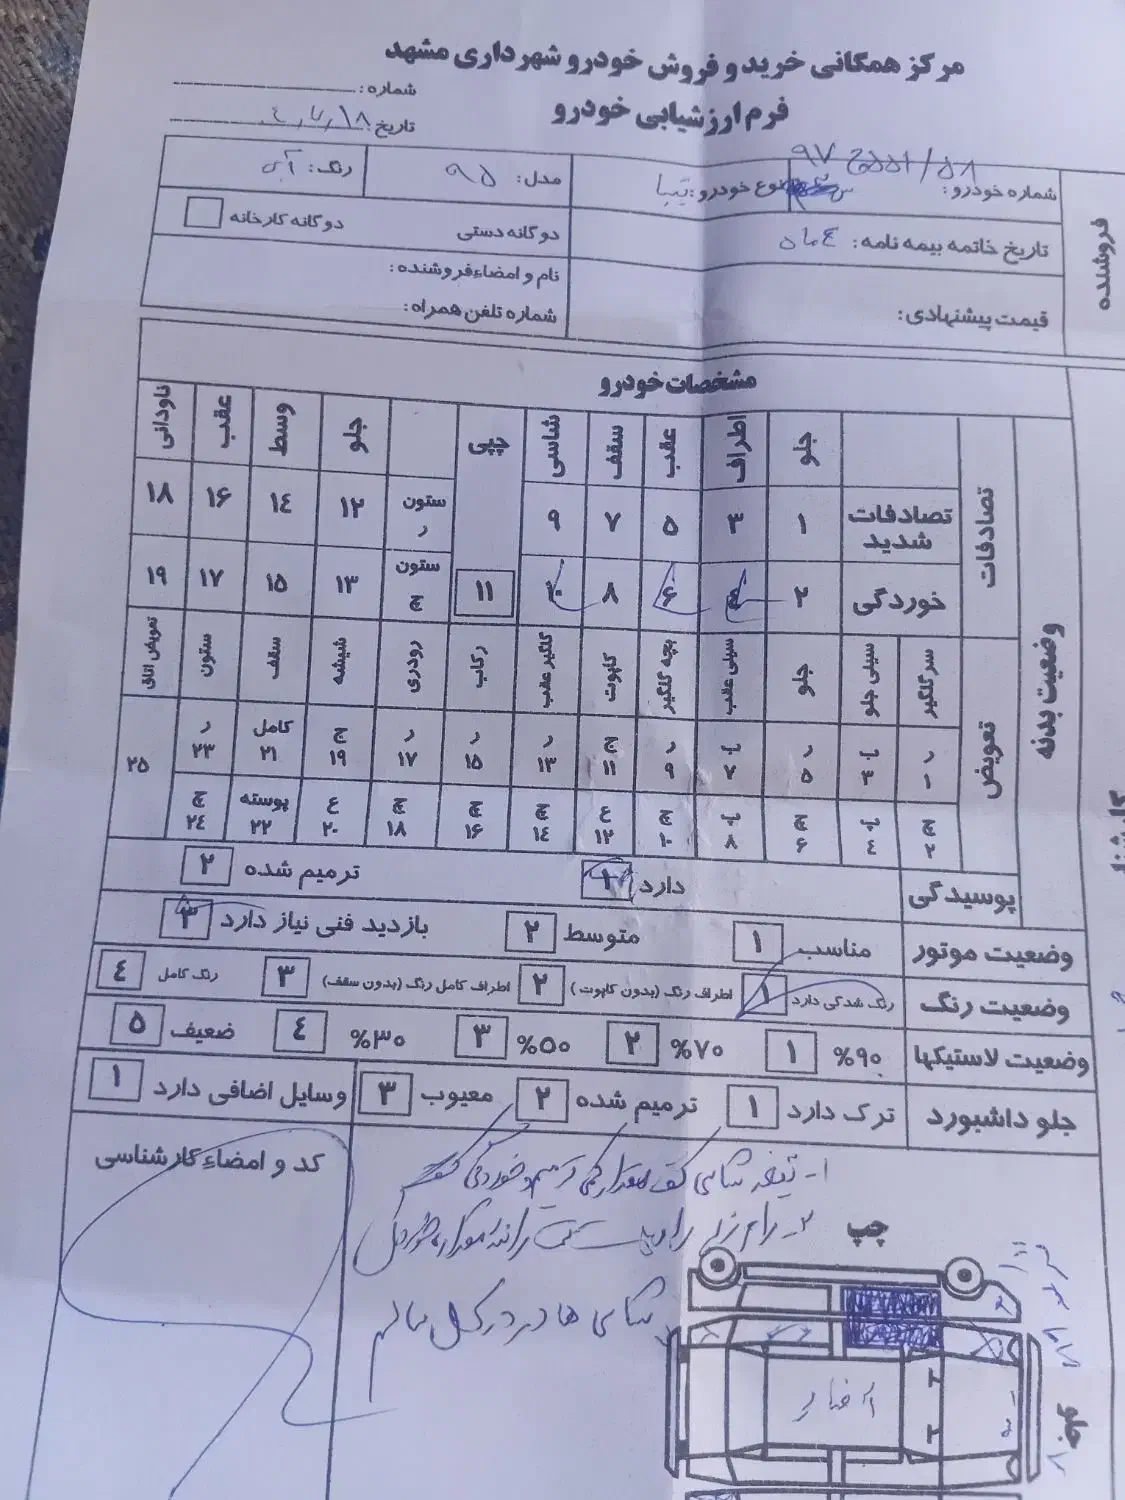 مرکز همگانی خرید و فروش خودرو شهرداری مشهد
فرم ارزشیابی خودرو
شماره:
تاریخ:
فروشنده
شماره خودرو:
نوع خودرو: تیبا
مدل: ۹۵
رنگ: آبی
تاریخ خاتمه بیمه نامه: ۴ ماه
دوگانه دستی
دوگانه کارخانه
قیمت پیشنهادی:
نام و امضاء فروشنده:
شماره تلفن همراه:
مشخصات خودرو
وضعیت بدنه
تصادفات
جلو اطراف عقب سقف شاسی پپی جلو وسط عقب ناودانی
تصادفات شدید ۱ ۳ ۵ ۷ ۹ ستون ر ۱۲ ۱۴ ۱۶ ۱۸
خوردگی ۲ ۴ ۶ ۸ ۱۰ ۱۱ ستون چ ۱۳ ۱۵ ۱۷ ۱۹
تعویض
سر گلگیر سینی جلو جلو سینی عقب بچه گلگیر کاپوت گلگیر عقب رکاب رودری شیشه سقف ستون تعویض اتاق
ر ۱ ب ۳ ر ۵ ب ۷ ر ۹ ج ۱۱ ر ۱۳ ر ۱۵ ر ۱۷ ج ۱۹ کامل ۲۱ ر ۲۳ ۲۵
چ ۲ ب ۴ چ ۶ ب ۸ چ ۱۰ ع ۱۲ چ ۱۴ چ ۱۶ چ ۱۸ ع ۲۰ پوسته ۲۲ چ ۲۴
پوسیدگی دارد ۱ ترمیم شده ۲
وضعیت موتور مناسب ۱ متوسط ۲ بازدید فنی نیاز دارد ۳
وضعیت رنگ رنگ شدگی دارد ۱ اطراف رنگ (بدون کاپوت) ۲ اطراف کامل رنگ (بدون سقف) ۳ رنگ کامل ۴
وضعیت لاستیکها ۹۰% ۱ ۷۰% ۲ ۵۰% ۳ ۳۰% ۴ ضعیف ۵
جلو داشبورد ترک دارد ۱ ترمیم شده ۲ معیوب ۳ وسایل اضافی دارد ۱
کد و امضاء کارشناسی
چپ
شاسی ها در کل سالم